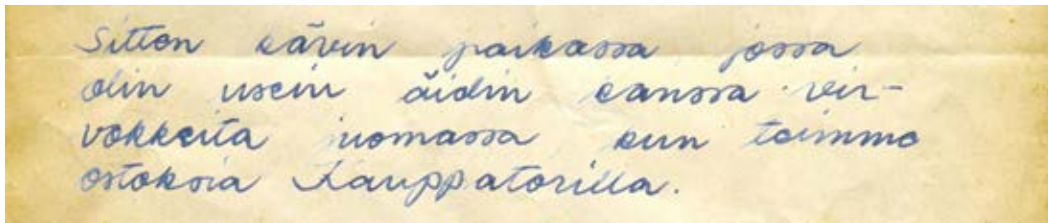 Sitten kävin paikassa jossa
olin usein äidin kanssa vir-
vokkeita juomassa kun teimme
ostoksia Kauppatorilla.